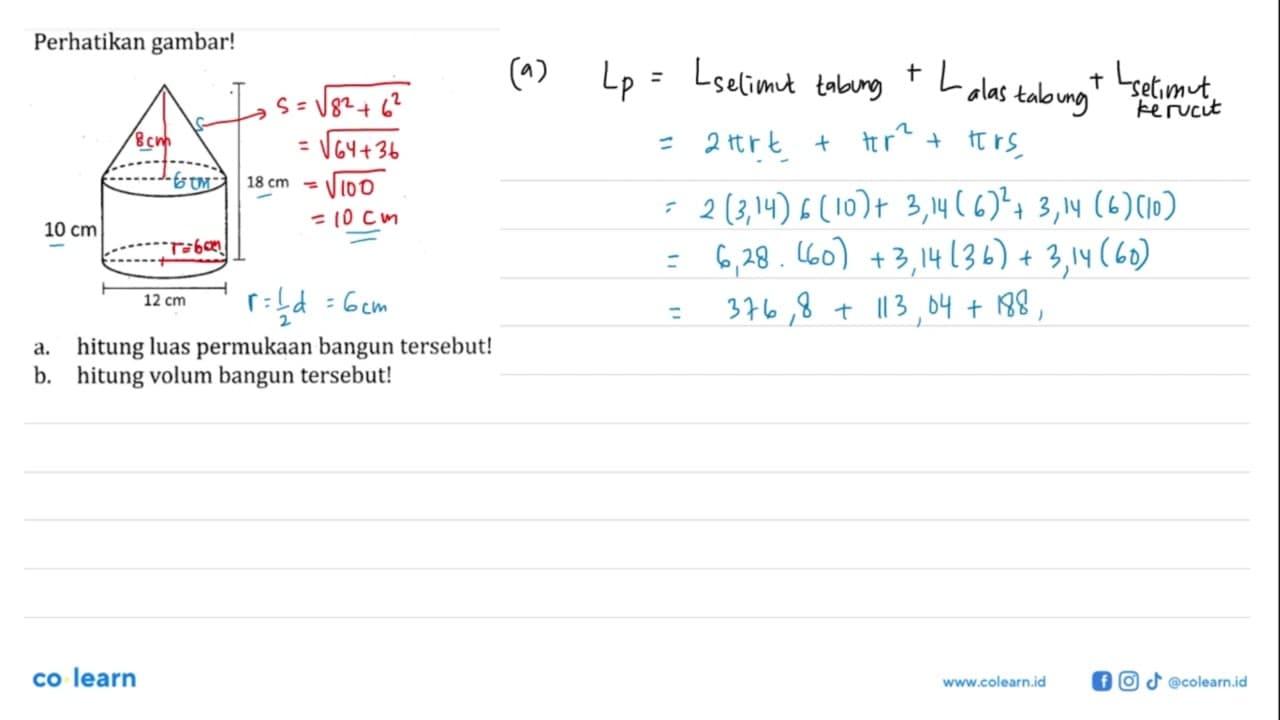 Perhatikan gambar!
8 cm
s
6 cm
18 cm
10 cm
r=6cm
12 cm
s = √8² + 6²
= √64+36
= √100
= 10 cm
r = 1/2 d = 6 cm
a. hitung luas permukaan bangun tersebut!
b. hitung volum bangun tersebut!
(a) Lp = L selimut tabung + L alas tabung + L selimut kerucut
= 2πrt + πr² + πrs
= 2 (3,14) 6 (10) + 3,14 (6)² + 3,14 (6) (10)
= 6,28 . (60) + 3,14 (36) + 3,14 (60)
= 376,8 + 113,04 + 188,
co learn
www.colearn.id
@colearn.id